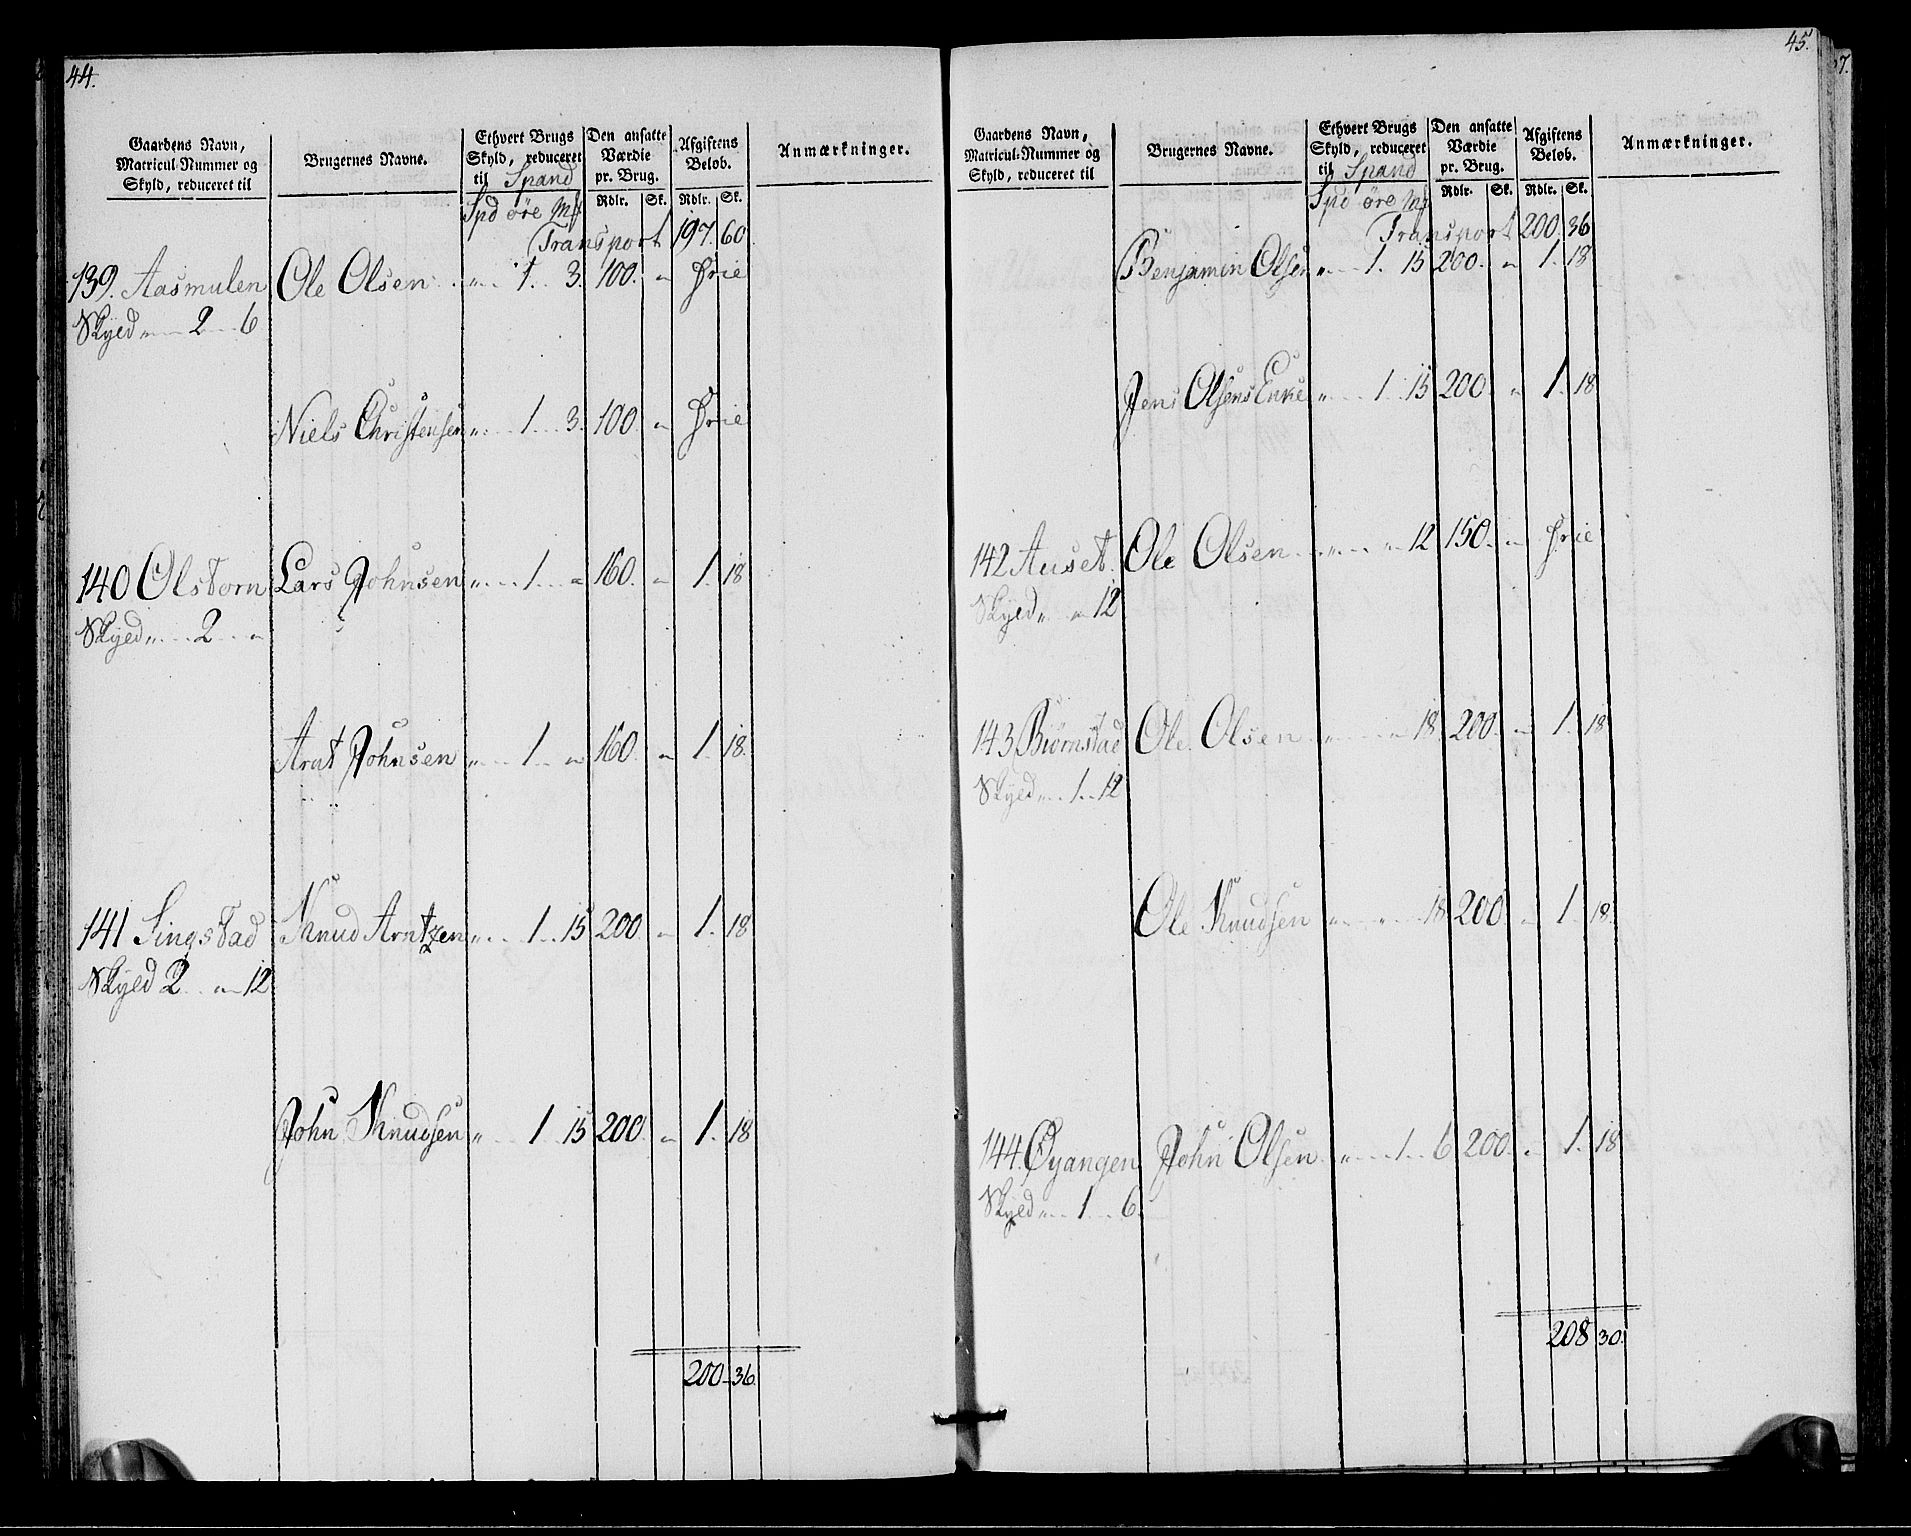 44.
Gaardens Navn, Matricul-Nummer og Skyld, reduceret til
Brugernes Navne.
Ethvert Brugs Skyld, reduceret til Spand
Den ansatte Værdie pr. Brug.
Afgiftens Beløb.
Anmærkninger.
Spd øre Mk
Rdlr. Sk. Rdlr. Sk.
Transport 197. 60
139. Aasmulen Ole Olsen „ 1. 3. 100. „ Frie
Skyld „ 2 6
Niels Christensen „ 1 3. 100. „ Frie
140 Olstorn Lars Johnsen „ 1 „ 160. „ 1. 18
Skyld „ 2 „
Arnt Johnsen „ 1 „ 160. „ 1. 18.
141 Singstad Knud Arntzen „ 1 15 200. „ 1. 18
Skyld 2 „ 12
John Knudsen „ 1 15 200. „ 1. 18
200 36
45.
Gaardens Navn, Matricul-Nummer og Skyld, reduceret til
Brugernes Navne.
Ethvert Brugs Skyld, reduceret til Spand
Den ansatte Værdie pr. Brug.
Afgiftens Beløb.
Anmærkninger.
Spd øre Mk
Rdlr. Sk. Rdlr. Sk.
Transport 200. 36
Benjamin Olsen „ 1. 15 200. „ 1. 18
Jens Olsens Enke „ 1 15 200. „ 1. 18
142 Auset. Ole Olsen „ „ 12 150. „ Frie
Skyld „ „ 12
143 Biørnstad Ole Olsen „ „ 18. 200. „ 1. 18
Skyld „ 1 12
Ole Knudsen „ „ 18 200 „ 1. 18.
144. Øyangen John Olsen „ 1 6 200. „ 1. 18
Skyld „ 1 6.
208 30.